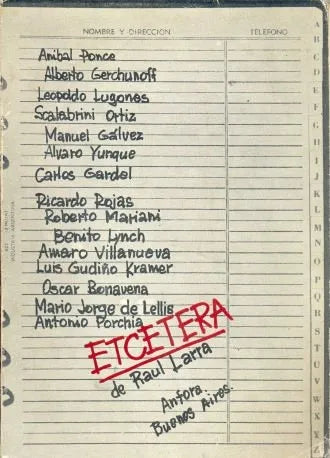 NOMBRE Y DIRECCION TELEFONO
Anibal Ponce
Alberto Gerchunoff
Leopoldo Lugones
Scalabrini Ortiz
Manuel Gálvez
Alvaro Yunque
Carlos Gardel
Ricardo Rojas
Roberto Mariani
Benito Lynch
Amaro Villanueva
Luis Gudiño Kramer
Oscar Bonavena
Mario Jorge de Lellis
Antonio Porchia
ETCETERA
de Raul Larra
Anfora.
Buenos Aires.
A
B
C
D
E
F
G
H
I
J
K
L
M
N
O
P
Q
R
S
T
U
V
W
X
Y
Z
INDUSTRIA ARGENTINA